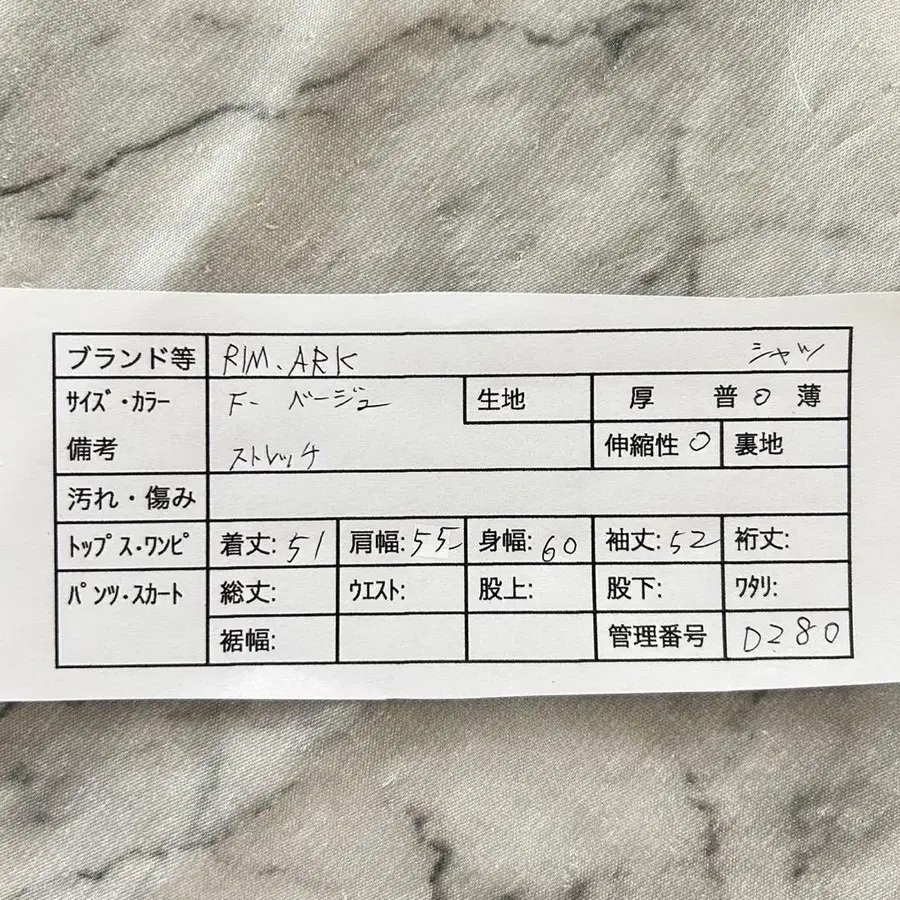 ブランド等 RIM.ARK シャツ
サイズ・カラー F- ベージュ 生地 厚 普○ 薄
備考 ストレッチ 伸縮性○ 裏地
汚れ・傷み
トップス・ワンピ 着丈:51 肩幅:55 身幅:60 袖丈:52 裄丈:
パンツ・スカート 総丈: ウエスト: 股上: 股下: ワタリ:
裾幅: 管理番号 D280